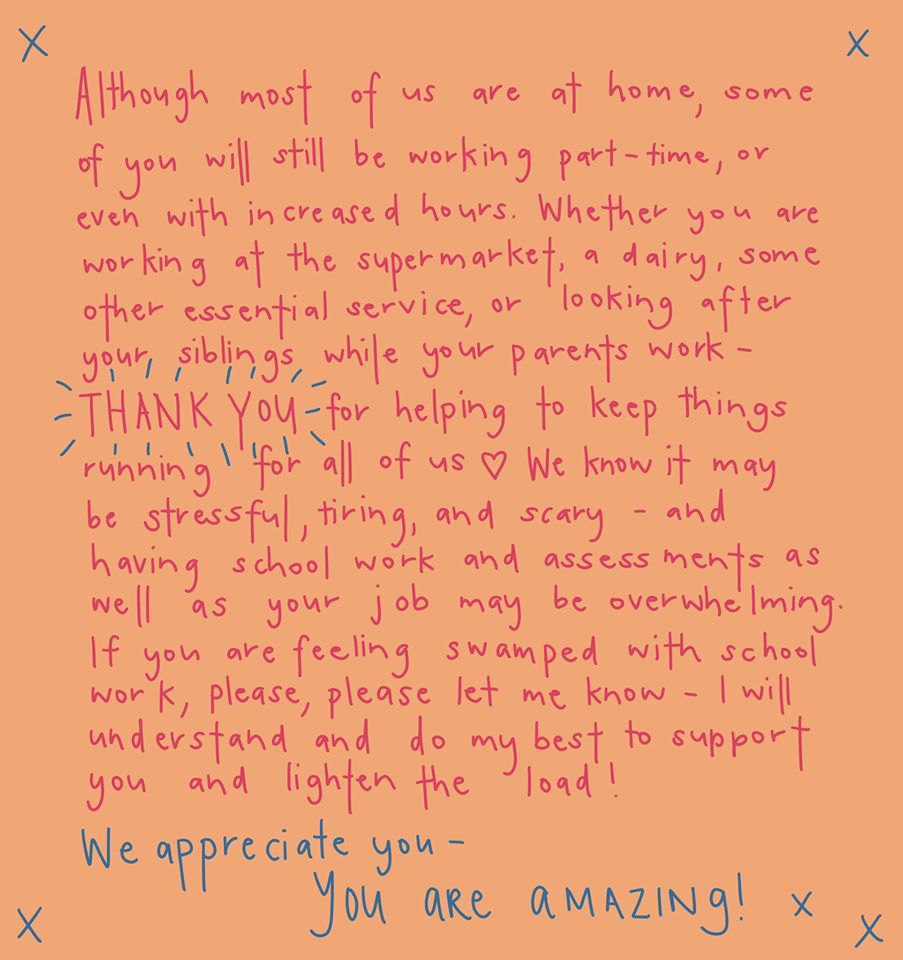 X X
Although most of us are at home, some
of you will still be working part-time, or
even with increased hours. Whether you are
working at the supermarket, a dairy, some
other essential service, or looking after
your siblings while your parents work -
THANK YOU for helping to keep things
running for all of us ♡ We know it may
be stressful, tiring, and scary - and
having school work and assessments as
well as your job may be overwhelming.
If you are feeling swamped with school
work, please, please let me know - I will
understand and do my best to support
you and lighten the load!
We appreciate you -
YOU ARE AMAZING! X
X X